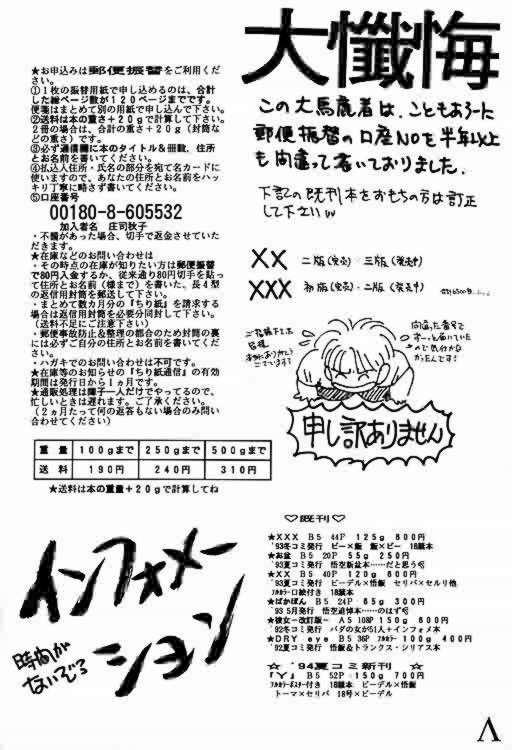 ★お申込みは郵便振替をご利用くだ
さい。
①1枚の振替用紙で申し込めるのは、合計
した総ページ数が120ページまでです。
便箋はまとめて別の用紙で申し込んで下さい。
②送料は本の重さ+20gで計算して下さい。
2冊の場合は、合計の重さ+20g(封筒など
の重さ)です。
③必ず通信欄に本のタイトル&冊数、住所
とお名前を書いてください。
④払込人住所・氏名の部分を宛て名カードに
使いますので、あなたの住所とお名前をハッ
キリ丁寧に略さず書いてください。
⑤口座番号
00180-8-605532
加入者名 庄司秋子
・不備があった場合、切手で返金させていた
だきます。
★在庫などのお問い合わせは
・その時点の在庫が知りたい方は郵便振替
で80円入金するか、従来通り80円切手を貼っ
て住所とお名前(様まで)を書いた、長4型
の返信用封筒を郵送して下さい。
・まとめて数カ月分の『ちり紙』を請求する
場合は返信用封筒を必要分同封して下さい。
(送料不足にご注意下さい)
・郵便事故防止&整理の都合のため封筒の裏
には必ずご自分の住所とお名前を書いてくだ
さい。
・ハガキでのお問い合わせは不可です。
★在庫等のお知らせの『ちり紙通信』の有効
期間は発行日から1カ月です。
★通販処理は障子一人だけでやってるので、
忙しいときは遅れます。ご了承ください。
(2カ月たって何の返答もない場合のみ問い
合わせてください)
重量 100gまで 250gまで 500gまで
送料 190円 240円 310円
★送料は本の重量+20gで計算してね
インフォメー
ション
時間が
ないぞろ
大懺悔
この大馬鹿者は、こともあろーに
郵便振替の口座NOを半年以上
も間違って書いておりました。
下記の既刊本をおもちの方は訂正
して下さい
XX 二版(完売)・三版(発売中)
XXX 初版(完売)・二版(発売中)
ご指摘下さった
皆様
本当にありがとう
ございます!
間違った番号で
ずーっと届いていた
ので気付かな
かったんです!
申し訳ありません
♡既刊♡
★XXX B5 44P 125g 600円
'93冬コミ発行 ビー×飯 飯×ビー 18禁本
★お盆 B5 20P 55g 250円
'93夏コミ発行 悟空新盆本……だと思う
★XX B5 40P 120g 600円
'93夏コミ発行 ビーデル×悟飯 セリパ×セルリ他
フルカラー口絵付き 18禁本
★ばかぼん B5 24P 65g 300円
'93 5月発行 悟空追悼本……のはず
★彼女-改訂版- A5 108P 150g 600円
'92冬コミ発行 バダの女が51人+インフォメ本
★DRY eye B5 36P フルカラー 100g 400円
'92夏コミ発行 悟飯&トランクス・シリアス本
☆ '94夏コミ新刊 ☆
『Y』 B5 52P 150g 700円
フルカラーポスター付き 18禁本 ビーデル×悟飯
トーマ×セリパ 18号×ビーデル
Λ